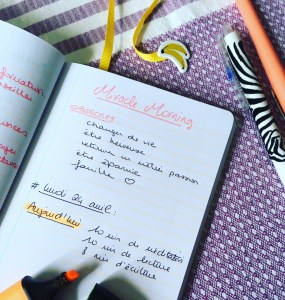 formation
Miracle Morning
OBJECTIFS :
changer de vie
être heureuse
retrouver un métier passion
être épanouie
famille ♡
# lundi 24 avril :
Aujourd'hui
10 min de méditation
10 min de lecture
8 min d'écriture